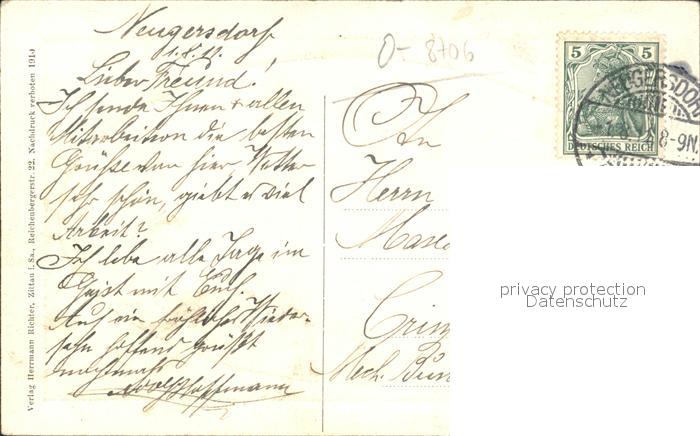 Neugersdorf
Lieber Freund!
Ich sende Ihnen + allen
Mitarbeitern die besten
Grüße von hier. Wetter
sehr schön, giebt es viel
Arbeit?
Ich lebe alle Tage im
Geist mit Euch.
Auf ein fröhliches Wieder-
sehn hoffend grüßt
nochmals
Adolf Hoffmann
Verlag Herrmann Richter, Zittau i. Sa., Reichenbergerstr. 22. Nachdruck verboten 1910
0- 8706
5 5
DEUTSCHES REICH
NEUGERSDO
8-9N.
An
Herrn
Mech.
privacy protection
Datenschutz